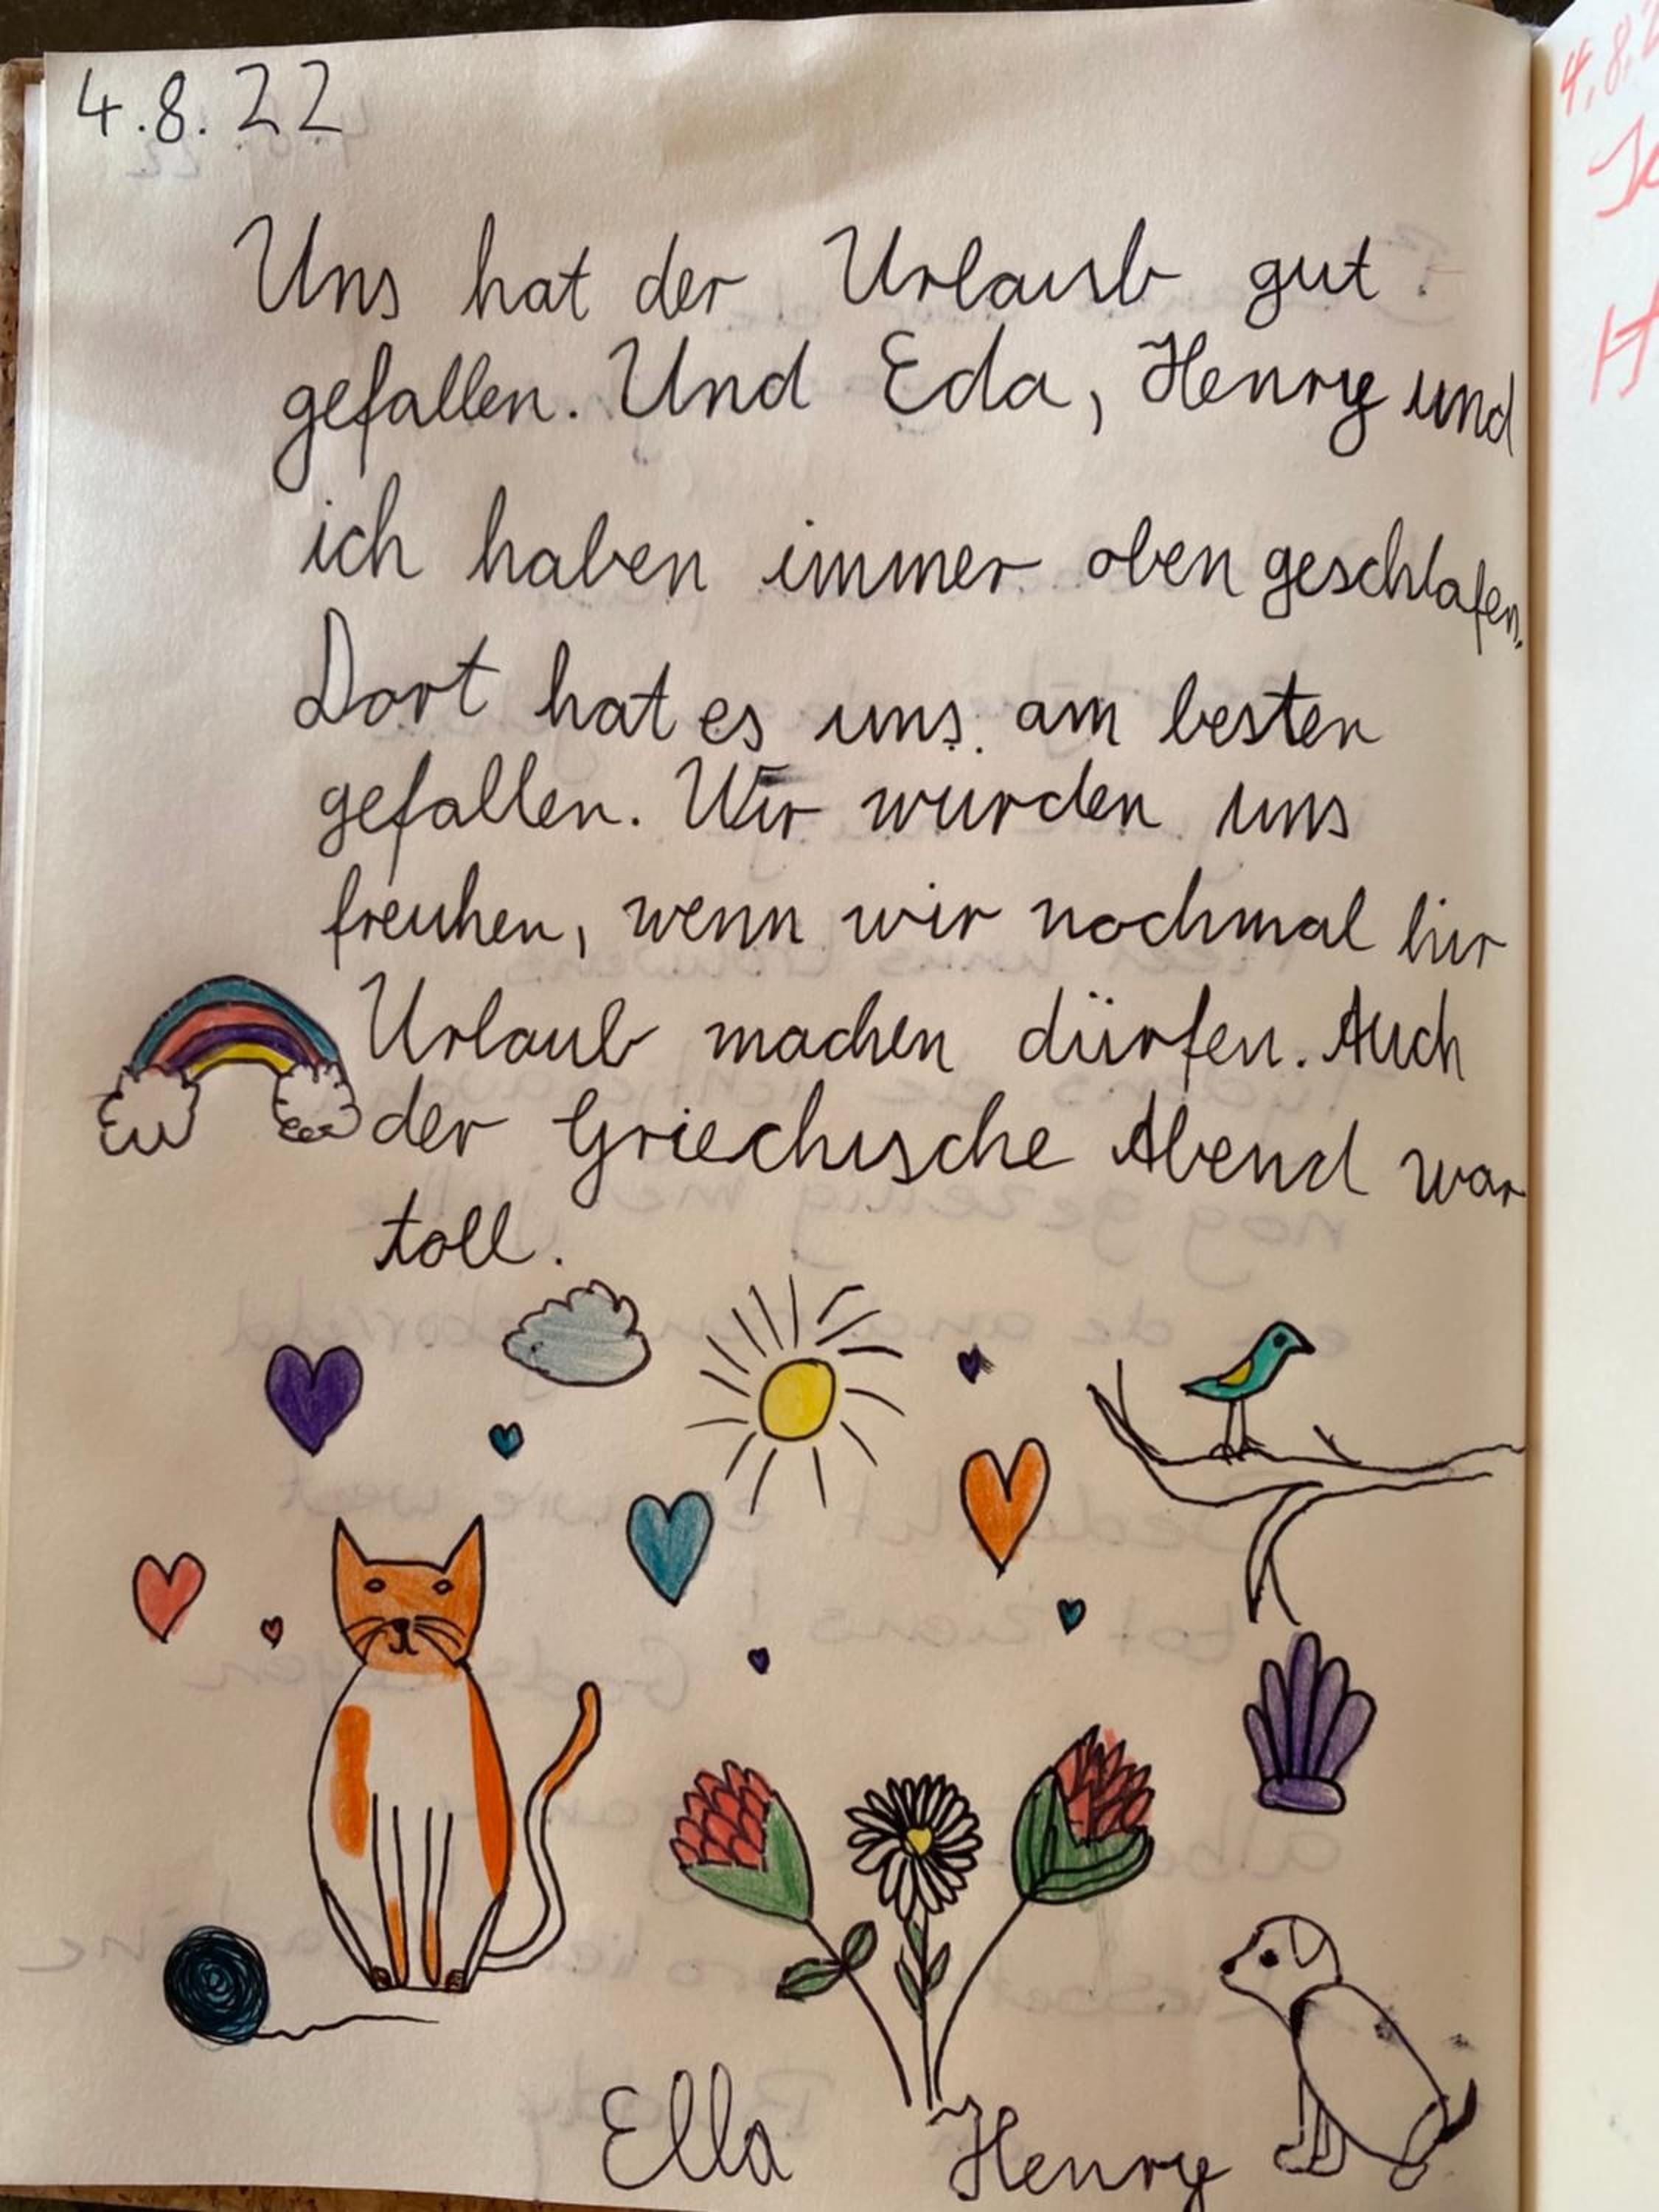 4.8.22
Uns hat der Urlaub gut
gefallen. Und Eda, Henry und
ich haben immer oben geschlafen.
Dort hat es uns am besten
gefallen. Wir wurden uns
freuhen, wenn wir nochmal hir
Urlaub machen dürfen. Auch
der Griechische Abend war
toll.
Ella Henry
4.8.2